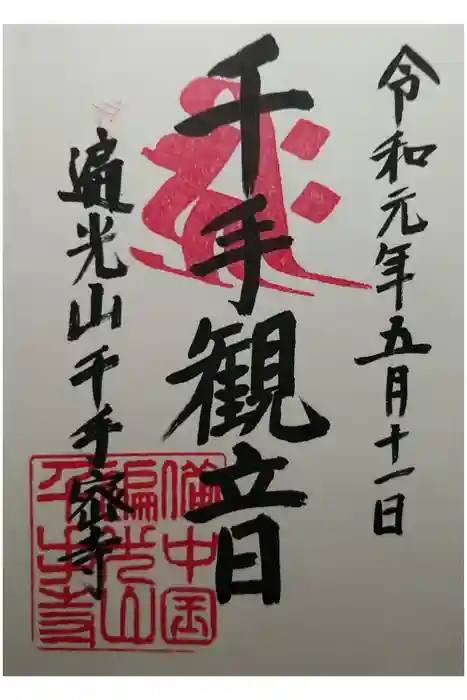 令和元年五月十一日
千手観音
遍光山千手寺
備中国
遍光山
千手寺